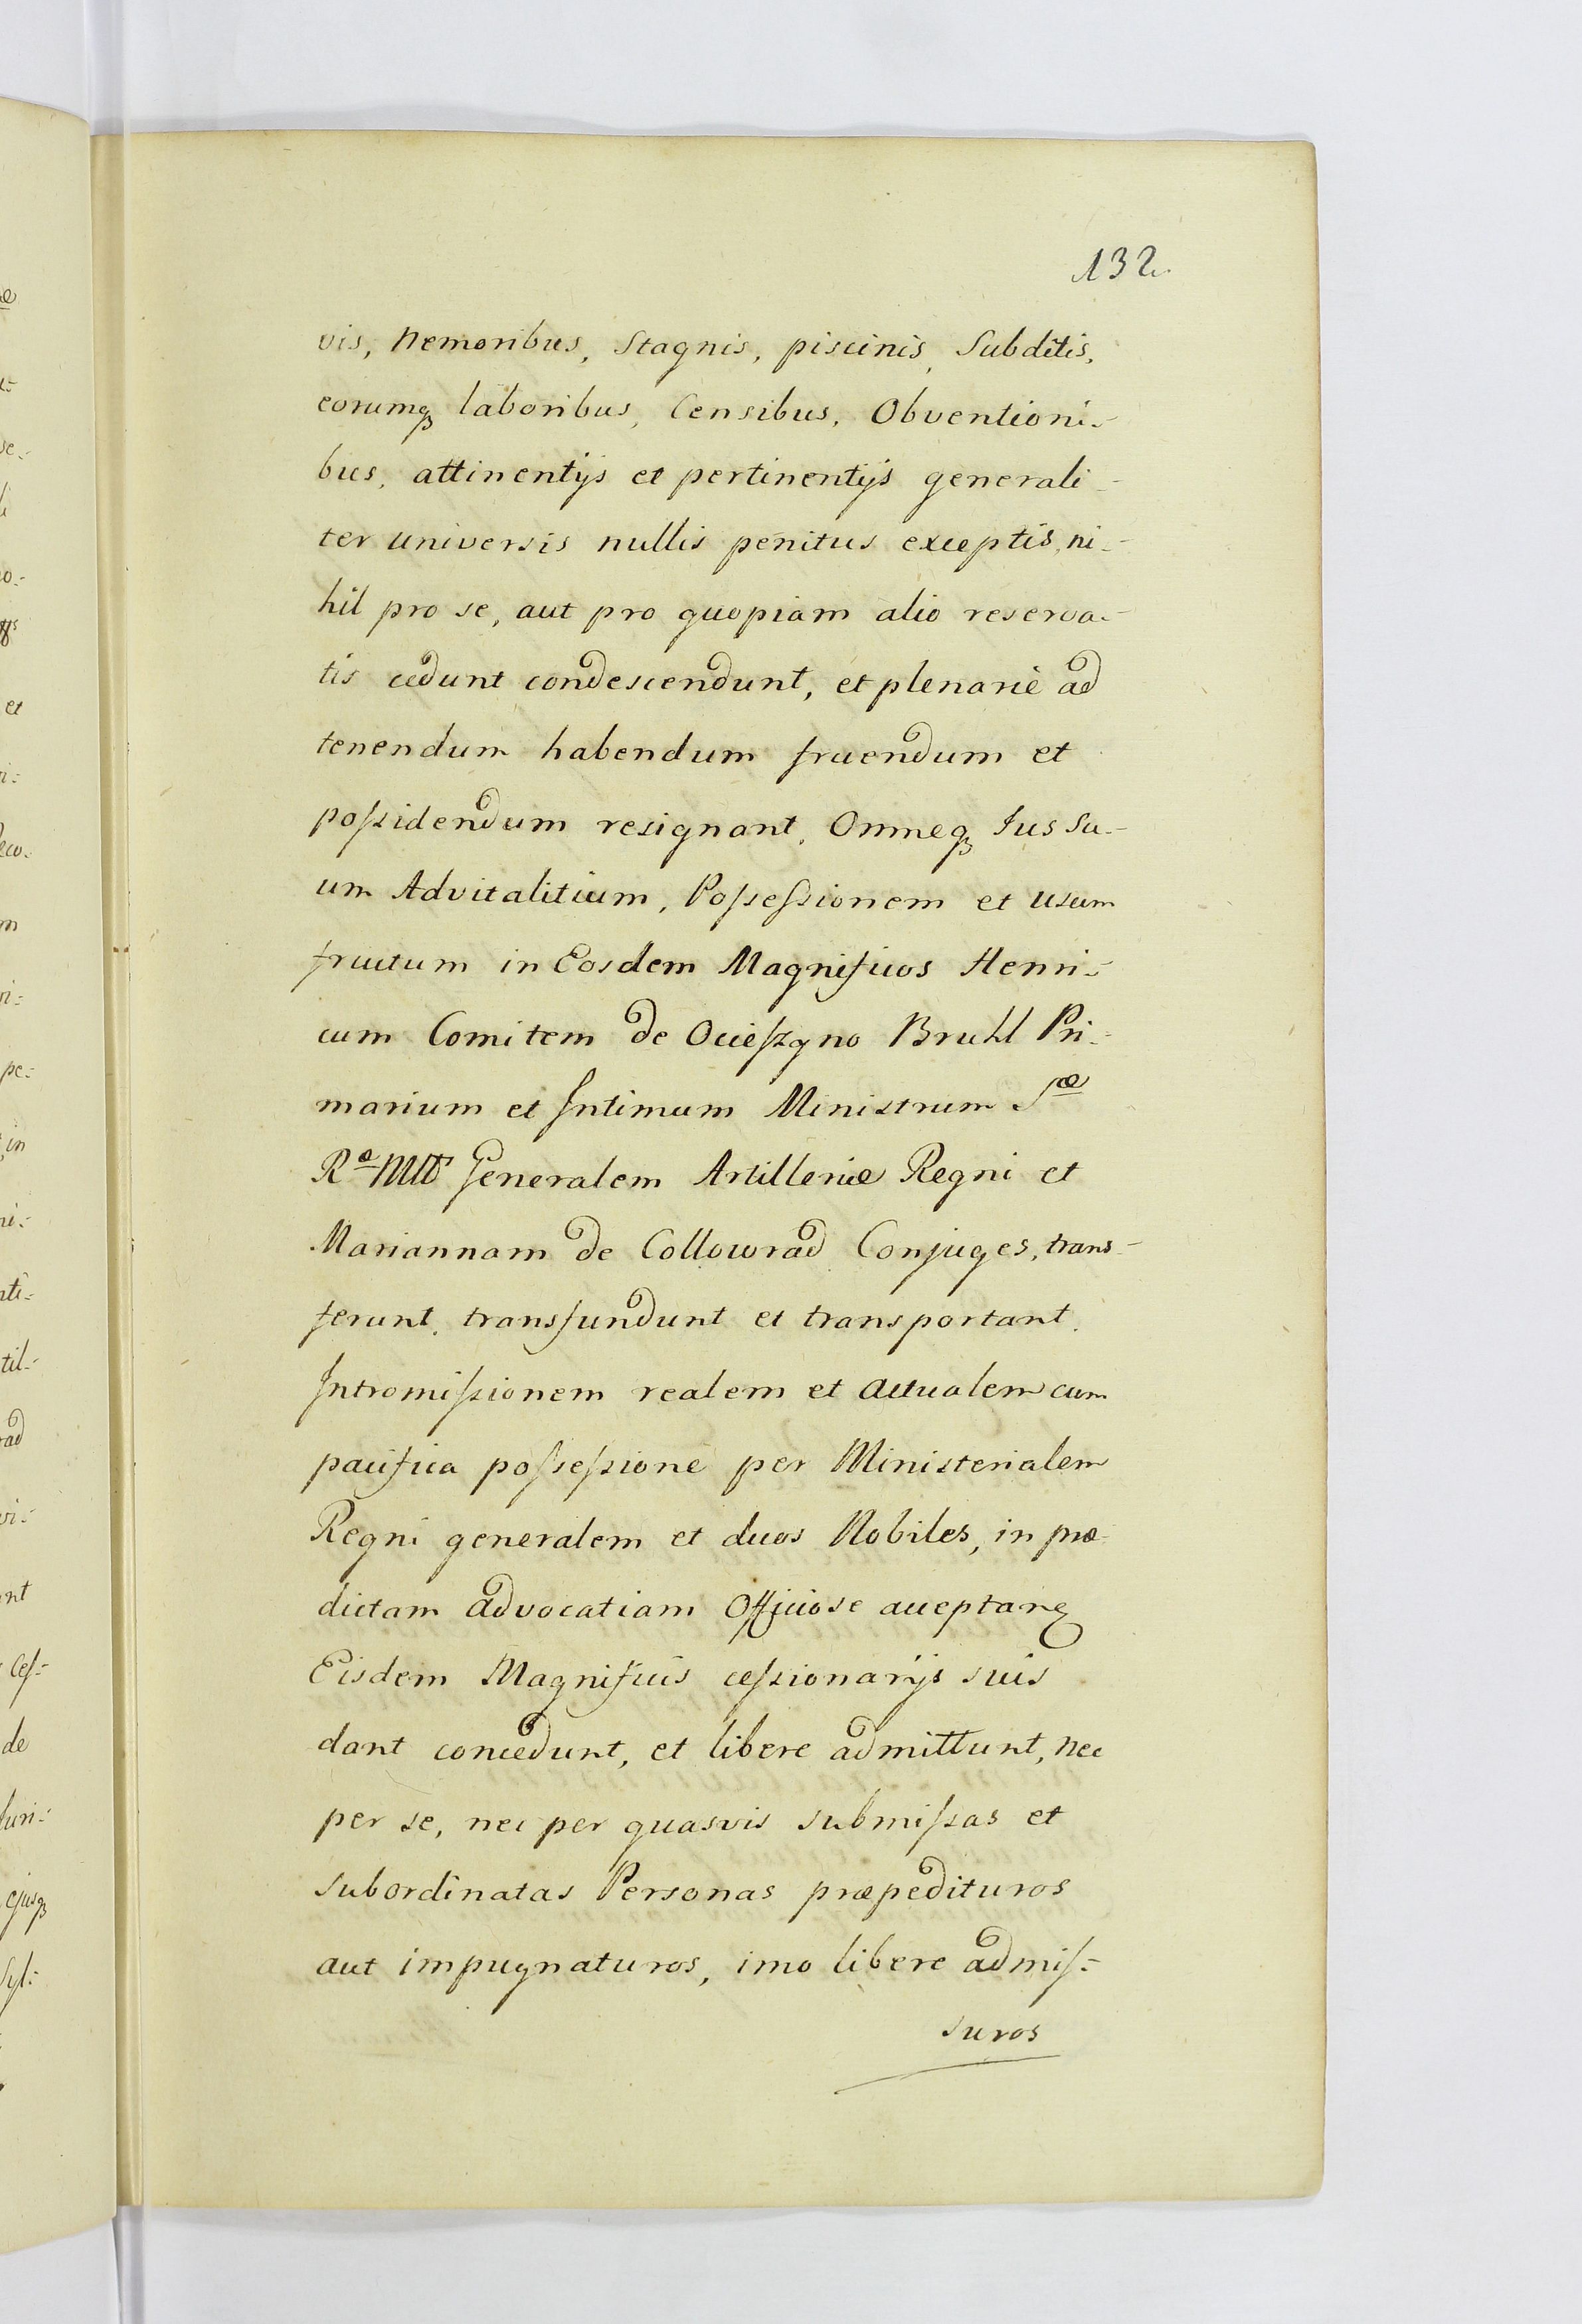 132.
vis, nemoribus, Stagnis, piscinis, Subditis,
eorumq₃ laboribus, Censibus, Obventioni-
bus, attinentijs et pertinentijs generali-
ter universis nullis penitus exceptis, ni-
hil pro se, aut pro quopiam alio reserva-
tis cedunt condescendunt, et plenarie ad
tenendum habendum fruendum et
poſsidendum resignant, Omneq₃ Jus Su-
um Advitalitium, Poſseſsionem et usum
fructum in Eosdem Magnificos Henri-
cum Comitem de Ocieſzyno Bruhl Pri-
marium et Intimum Ministrum Sæ
Ræ Mttis Generalem Artilleriæ Regni et
Mariannam de Collowrad Conjuges, trans-
ferunt, transfundunt et transportant.
Intromiſsionem realem et actualem cum
pacifica poſseſsione per Ministerialem
Regni generalem et duos Nobiles, in præ
dictam advocatiam Officiose acceptare
Eisdem Magnificis ceſsionarijs suis
dant concedunt, et libere admittunt, nec
per se, nec per quasvis submiſsas et
subordinatas Personas præpedituros
aut impugnaturos, imo libere admiſ-
suros